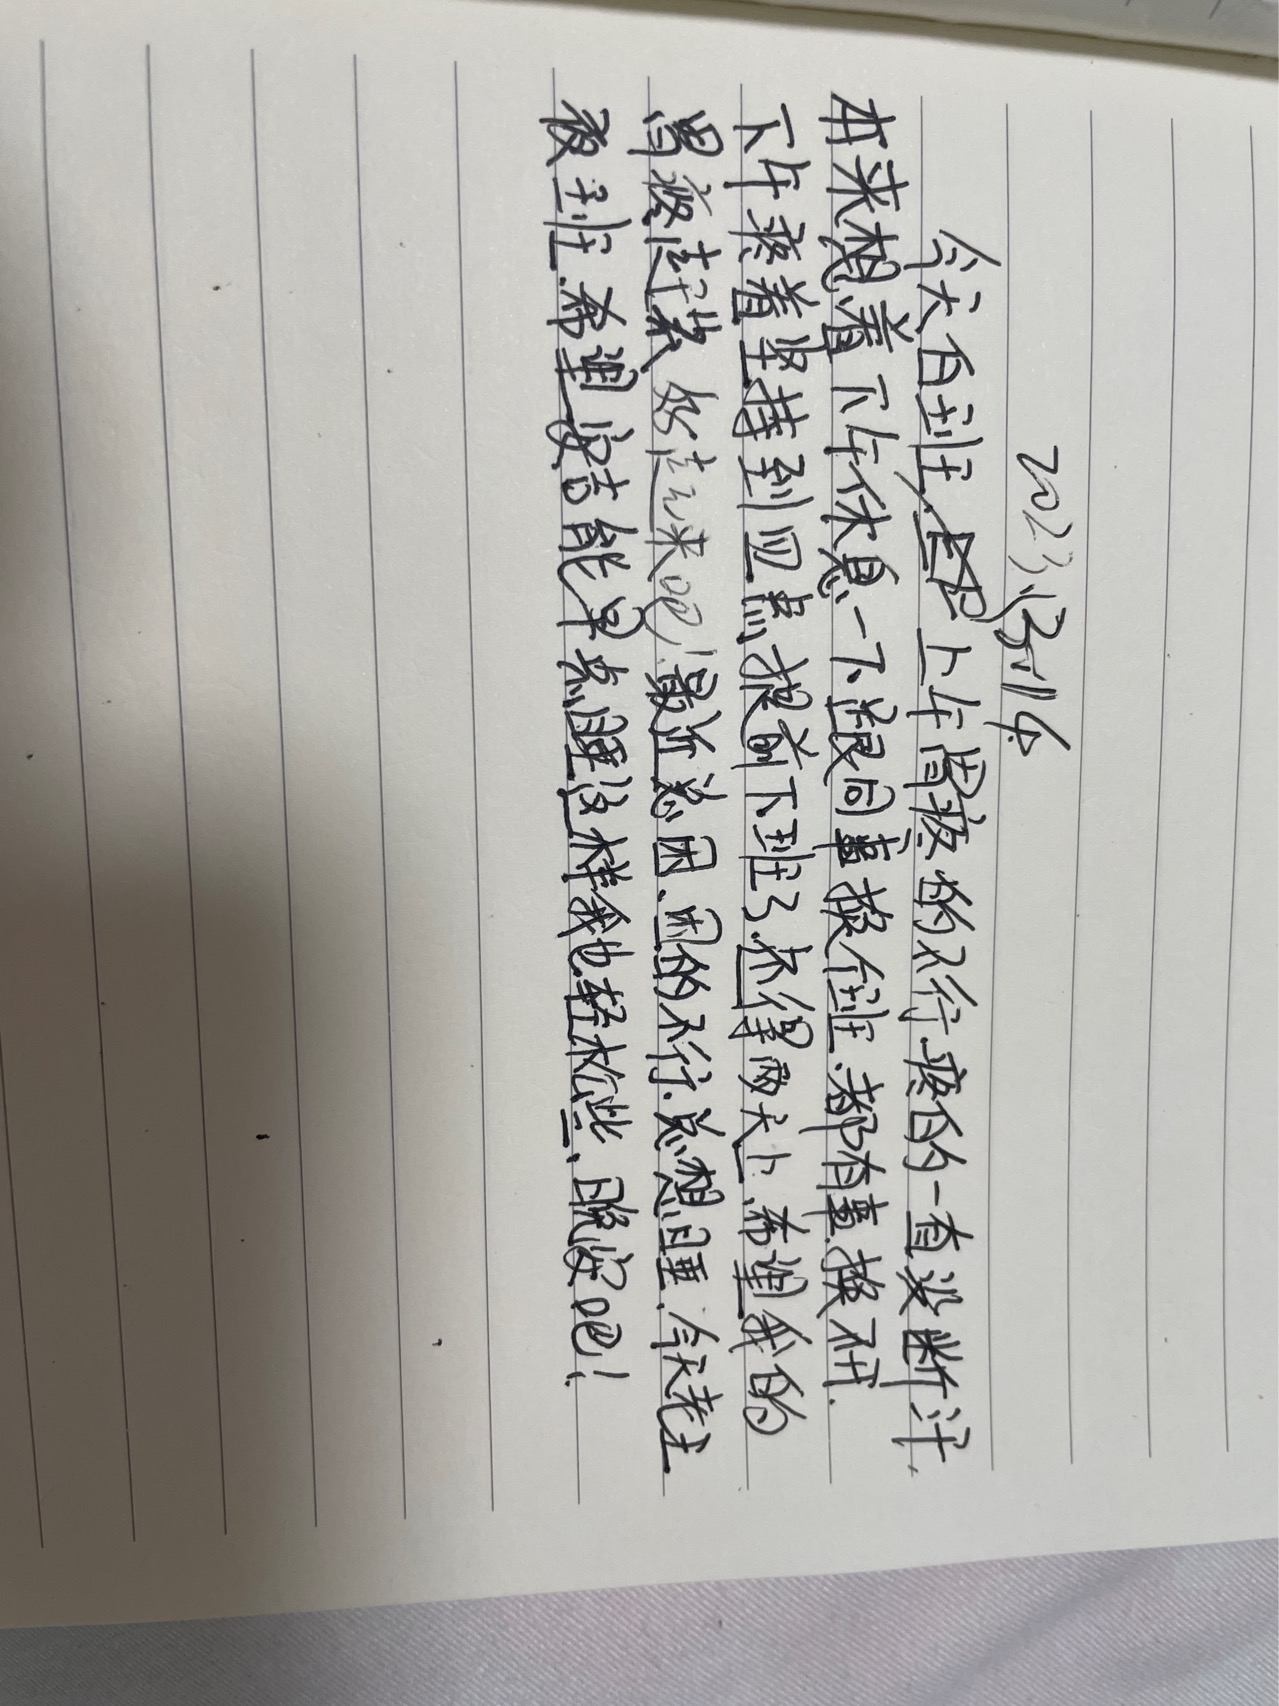 今天白班.上午胃疼的不行.疼的一直没断汗.
本来想着下午休息一下跟同事换个班.都有事.换不开.
下午疼着坚持到四点提前下班了.还得两天上.希望我的
胃疼赶紧好起来吧!最近总困、困的不行.总想睡.今天老王
夜班.希望安吉能早点睡这样我也轻松些、晚安吧!